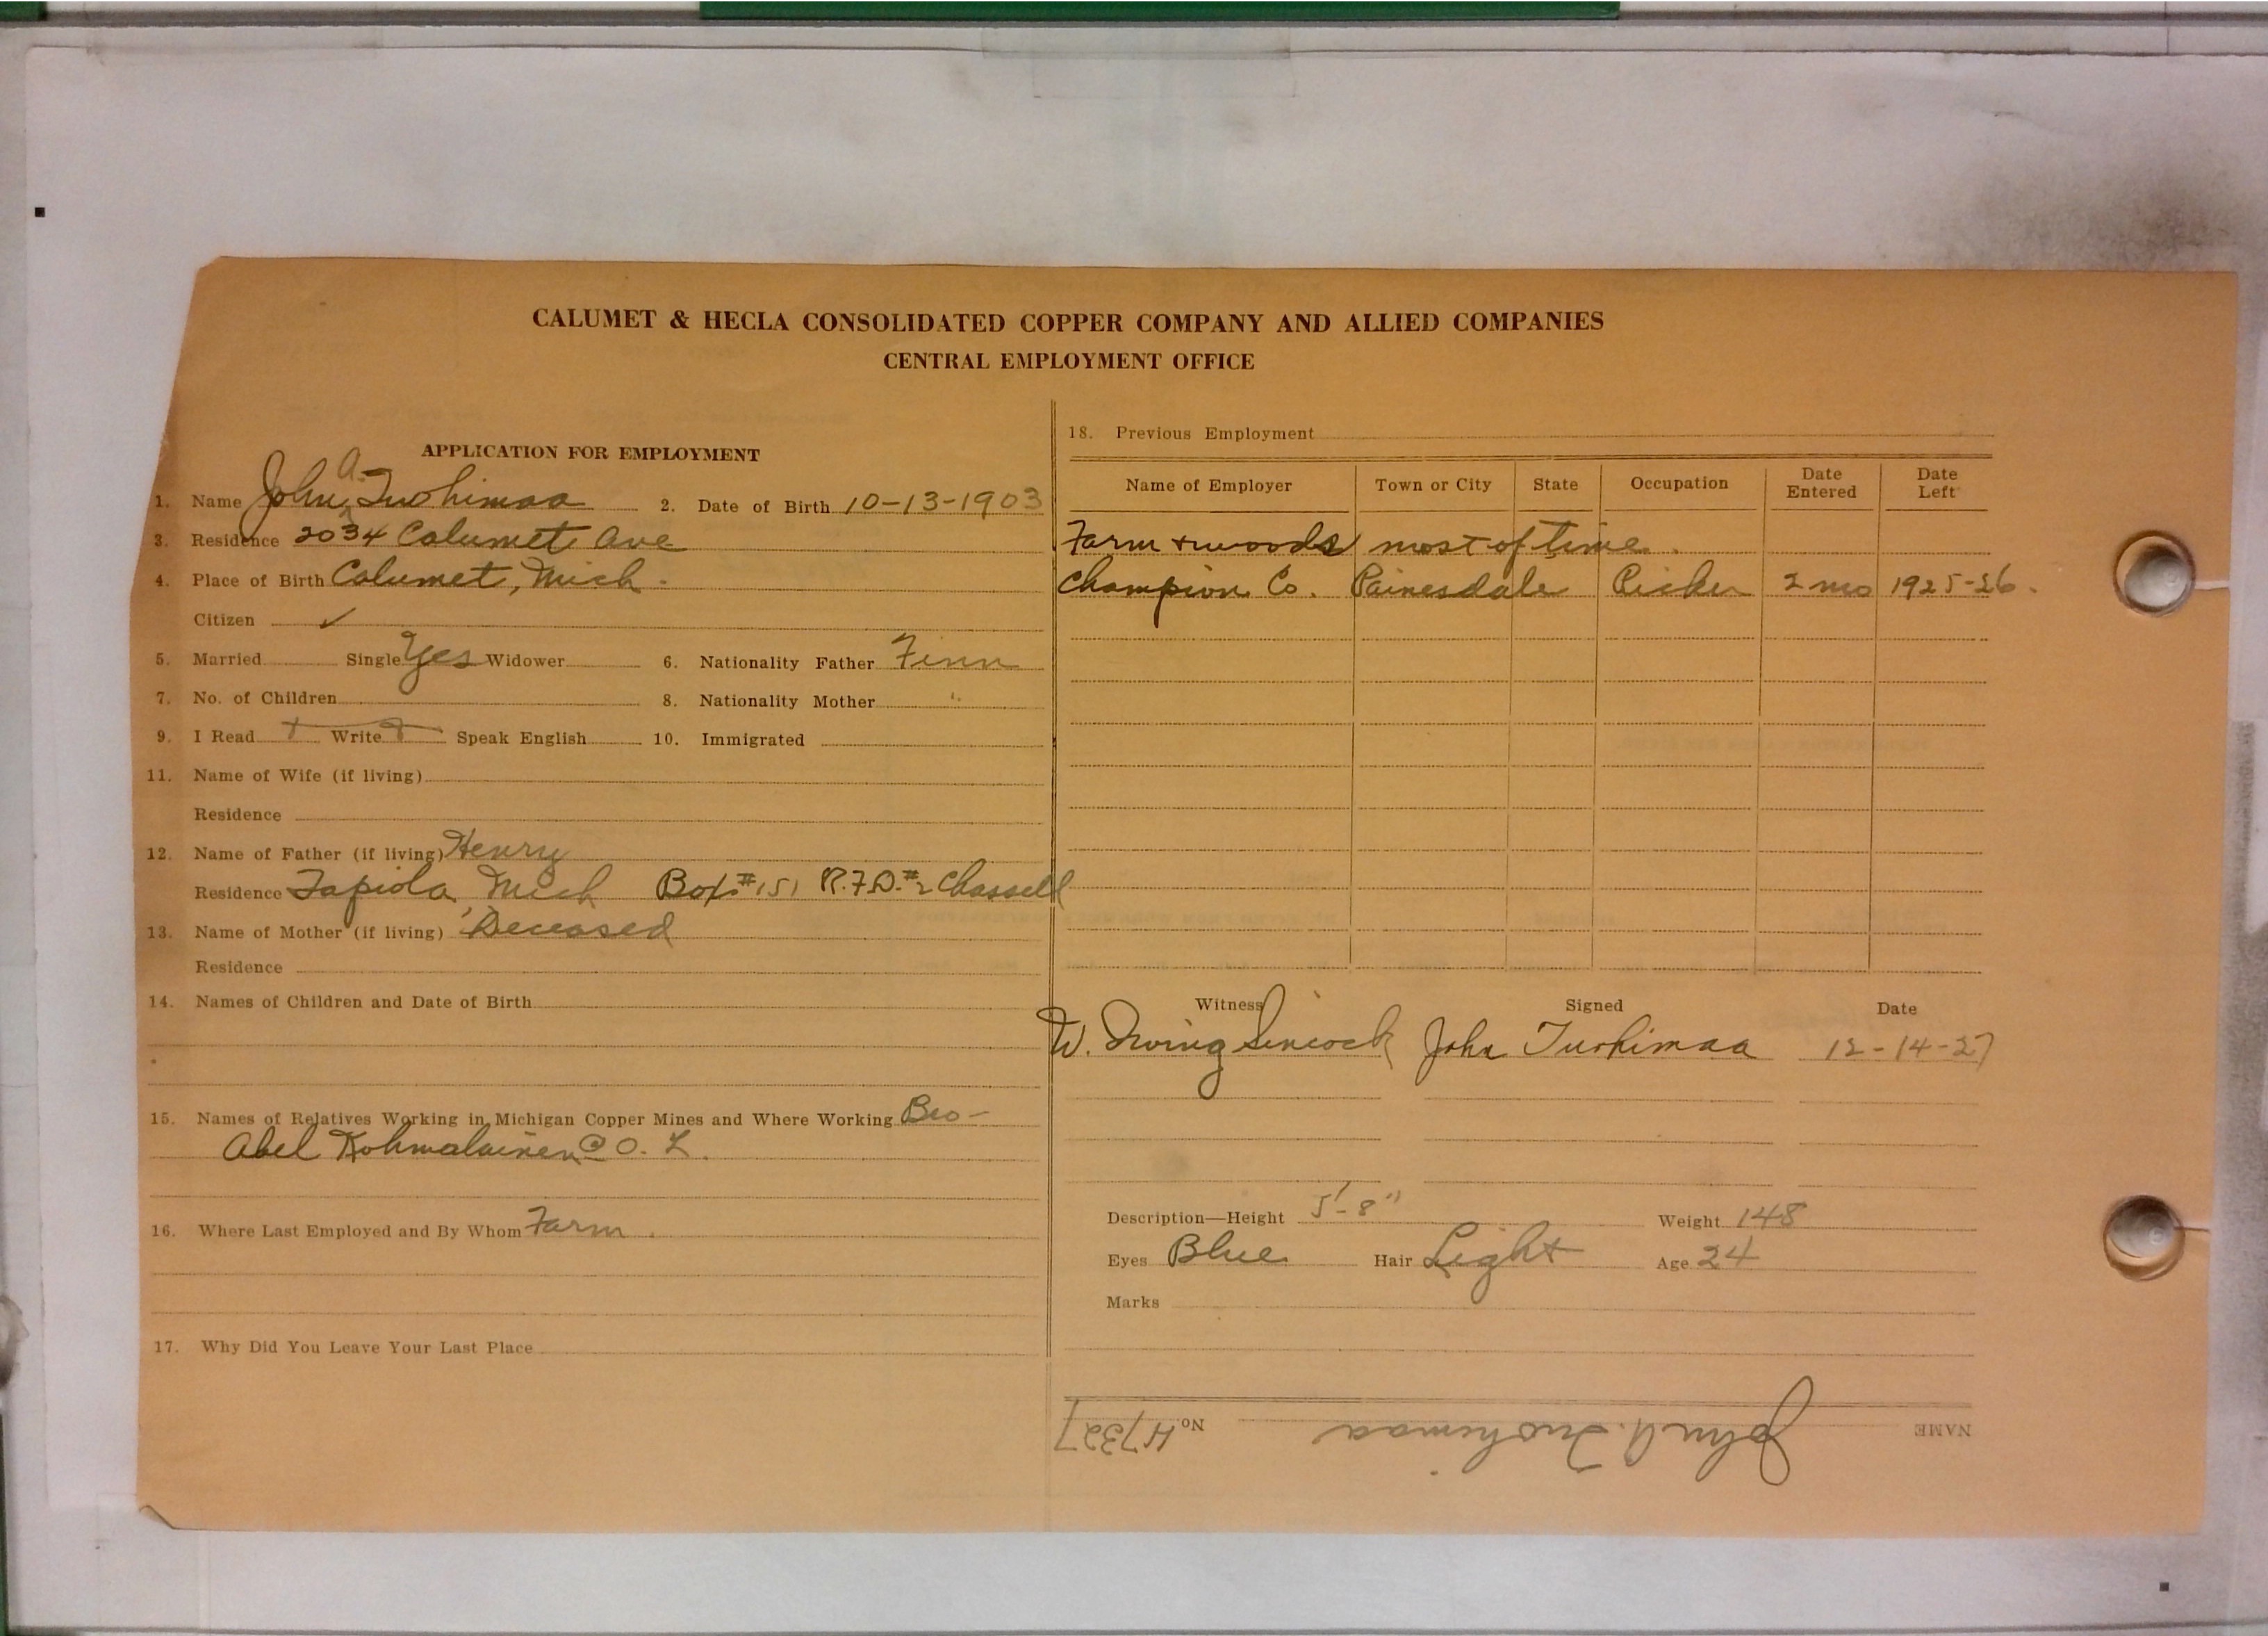 CALUMET & HECLA CONSOLIDATED COPPER COMPANY AND ALLIED COMPANIES
CENTRAL EMPLOYMENT OFFICE
APPLICATION FOR EMPLOYMENT
1. Name John A. Tuohimaa 2. Date of Birth 10-13-1903
3. Residence 2034 Calumet Ave
4. Place of Birth Calumet, Mich.
Citizen ✓
5. Married Single Yes Widower 6. Nationality Father Finn
7. No. of Children 8. Nationality Mother "
9. I Read Write Speak English 10. Immigrated
11. Name of Wife (if living)
Residence
12. Name of Father (if living) Henry
Residence Tapiola, Mich Box #151 R.F.D. #2 Chassell
13. Name of Mother (if living) Deceased
Residence
14. Names of Children and Date of Birth
15. Names of Relatives Working in Michigan Copper Mines and Where Working Bro-
Abel Kohmalainen @ O. L.
16. Where Last Employed and By Whom Farm.
17. Why Did You Leave Your Last Place
18. Previous Employment
Name of Employer Town or City State Occupation Date Entered Date Left
Farm + woods most of time.
Champion Co. Painesdale Picker 2 mo 1925-26.
Witness Signed Date
W. Irving Sincock John Tuohimaa 12-14-27
Description—Height 5'-8" Weight 148
Eyes Blue Hair Light Age 24
Marks
NAME John A. Tuohimaa No. H7327